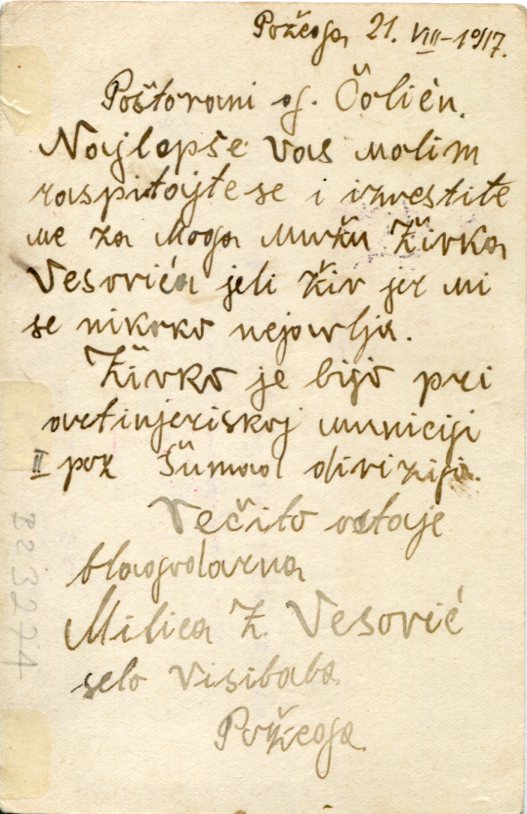 Požega 21. VIII-1917.
Poštovani g. Čolić.
Najlepše vas molim
raspitajte se i izvestite
me za moga muža Živka
Vesovića jeli živ jer mi
se nikako nejavlja.
Živko je bijo pri
artinjeriskoj municiji
II poz Šumad divizija.
Večito ostaje
blagodarna
Milica Ž. Vesović
selo Visibaba
Požega